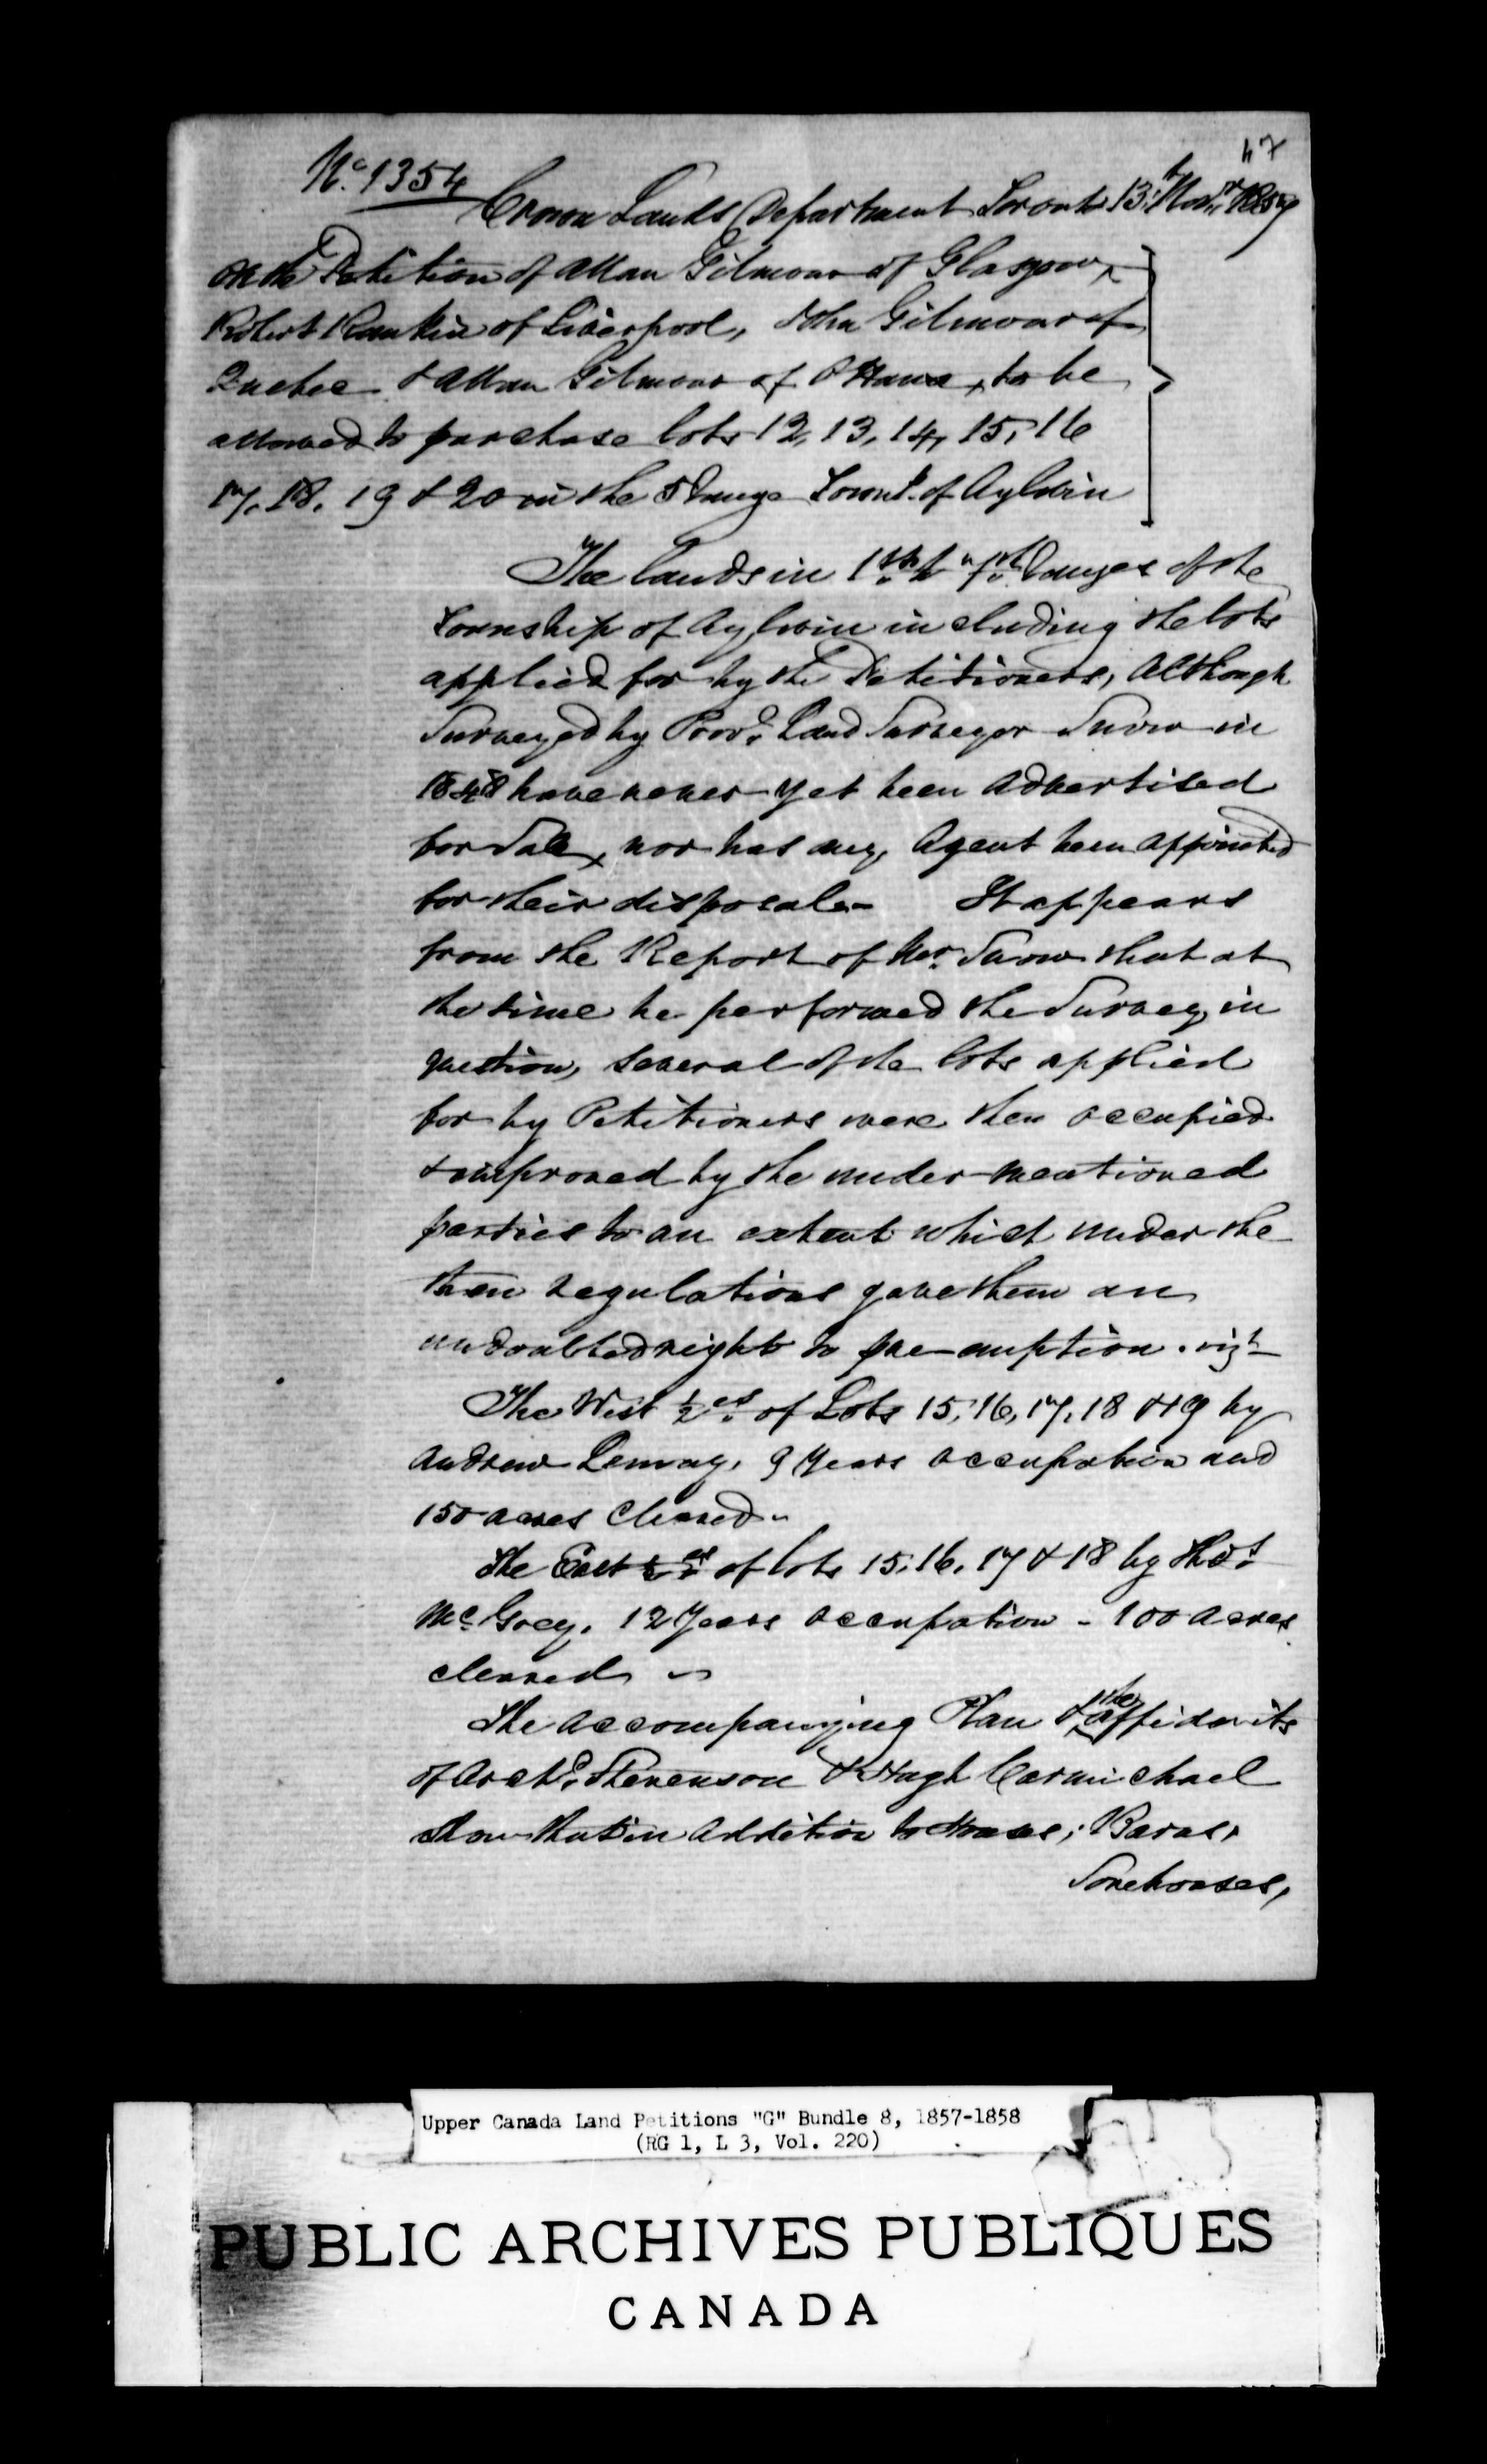 47
No. 1354
Crown Lands Department Toronto 13th Novr.
On the Petition of Allan Gilmour of Glasgow,
Robert Rankin of Liverpool, John Gilmour of
Quebec & Allan Gilmour of Ottawa, to be
allowed to purchase lots 12, 13, 14, 15, 16
17, 18, 19 & 20 in the 5 Range Townp. of Aylwin
The lands in 1st Ranges of the
Township of Aylwin including the lots
applied for by the Petitioners, Although
Surveyed by Provl. Land Surveyor Snow in
1848 have never yet been Advertised
for Sale, nor has any Agent been appointed
for their disposal. It appears
from the Report of Mr. Snow that at
the time he performed the Survey in
question, Several of the lots applied
for by Petitioners were then occupied
& improved by the under-mentioned
parties to an extent which under the
then regulations gave them an
undoubted right to pre-emption. viz
The West 1/2es. of Lots 15, 16, 17, 18 & 19 by
Andrew Lemay, 9 Years occupation and
150 acres Cleared
The East 1/2es. of lots 15, 16, 17 & 18 by Thos.
McGoey, 12 Years occupation - 100 Acres
cleared
The accompanying Plan & the affidavits
of Archd. Stevenson & Hugh Carmichael
show that in Addition to Houses, Barns,
Storehouses,
Upper Canada Land Petitions "G" Bundle 8, 1857-1858
(RG 1, L 3, Vol. 220)
PUBLIC ARCHIVES PUBLIQUES
CANADA